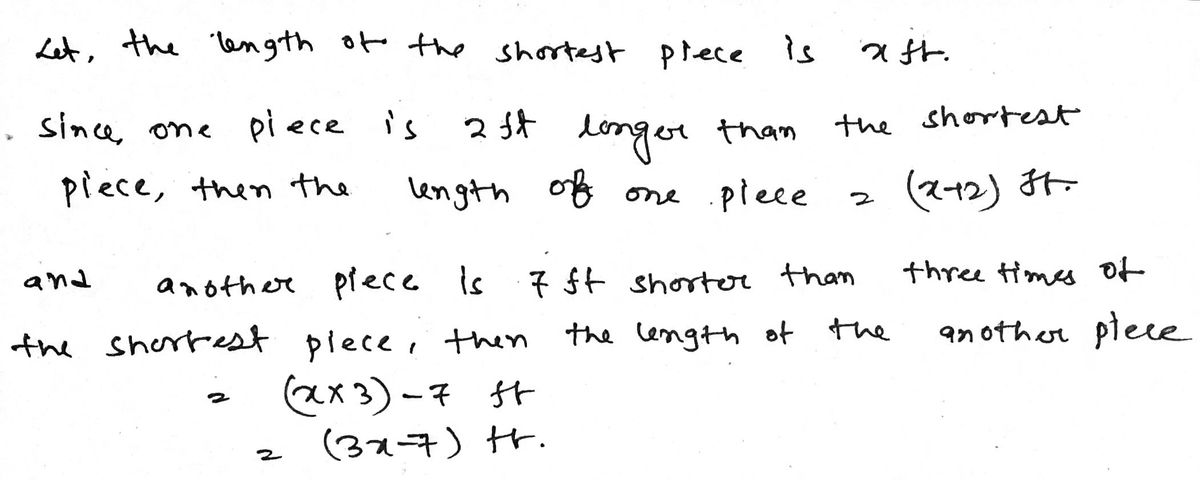 Let, the length of the shortest piece is x ft.
since, one piece is 2 ft longer than the shortest
piece, then the length of one piece = (x+2) ft.
and another piece is 7 ft shorter than three times of
the shortest piece, then the length of the another piece
= (x×3) -7 ft
= (3x-7) ft.